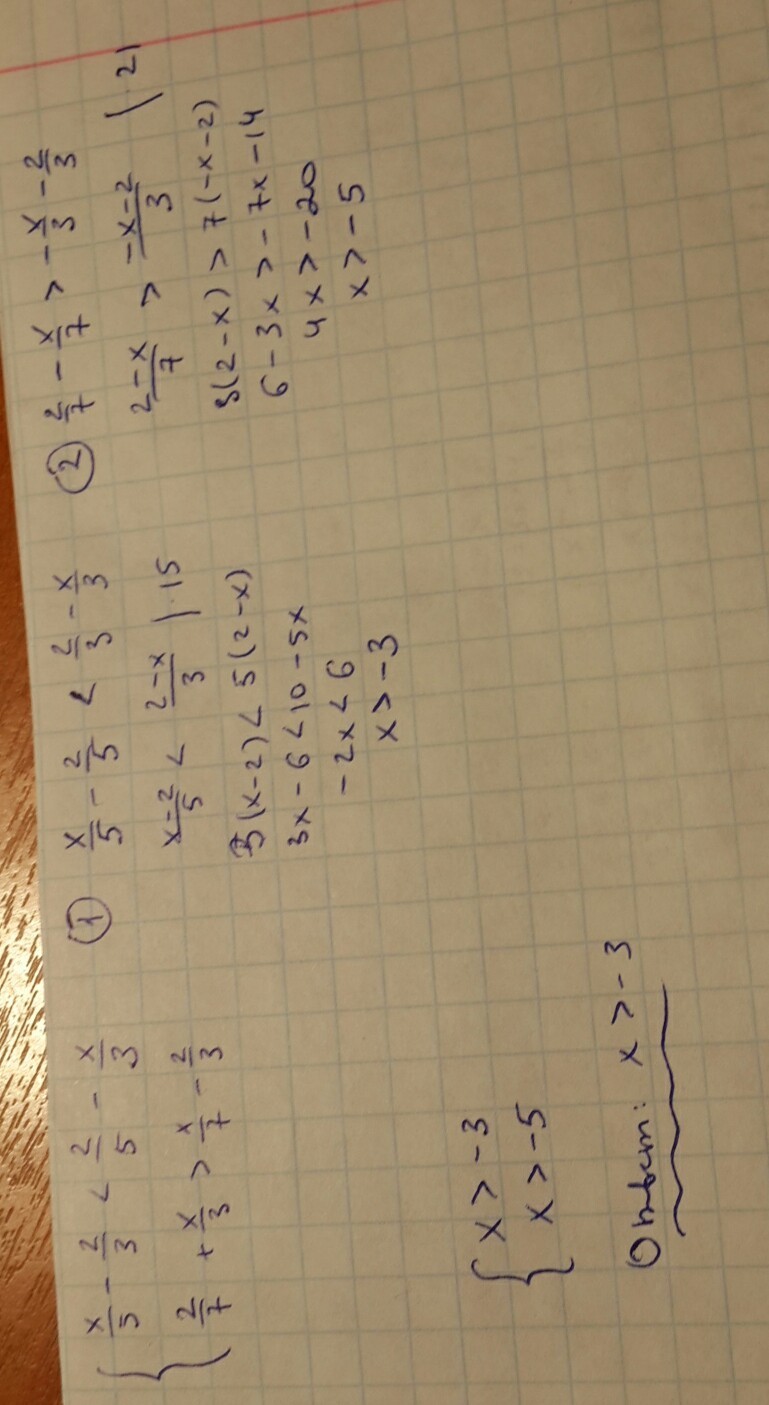 { x/5 - 2/3 < 2/5 - x/3
2/7 + x/3 > x/7 - 2/3
① x/5 - 2/5 < 2/3 - x/3
x-2/5 < 2-x/3 | 15
3(x-2) < 5(2-x)
3x - 6 < 10 - 5x
-2x < 6
x > -3
② 2/7 - x/7 > - x/3 - 2/3
2-x/7 > -x-2/3 | 21
3(2-x) > 7(-x-2)
6 - 3x > -7x - 14
4x > -20
x > -5
{ x > -3
x > -5
Ответ: x > -3